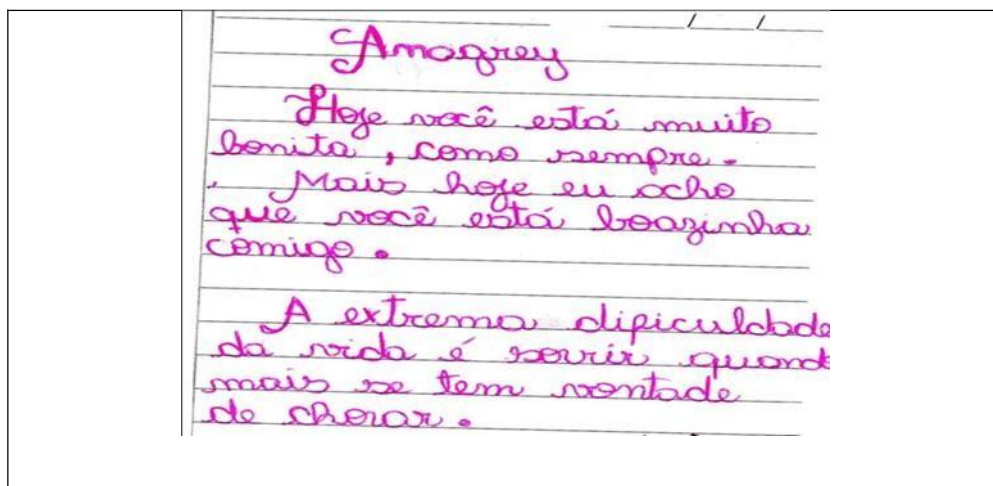 Amagrey
Hoje você está muito
bonita, como sempre.
Mais hoje eu acho
que você está boazinha
comigo.
A extrema dificuldade
da vida é sorrir quand
mais se tem vontade
de chorar.